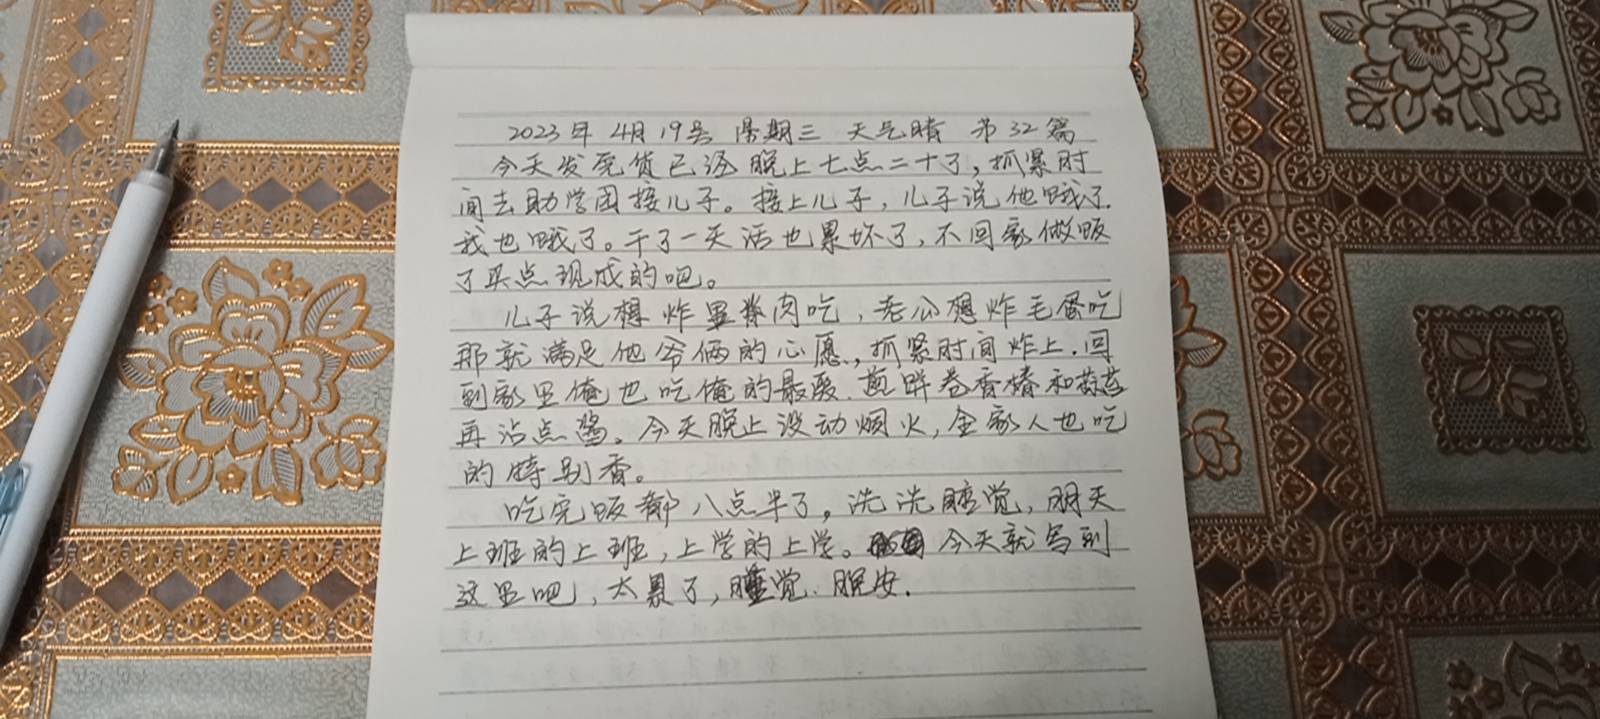 2023年 4月19号 星期三 天气晴 第32篇
今天发完货已经晚上七点二十了，抓紧时
间去助学园接儿子。接上儿子，儿子说他饿了.
我也饿了。干了一天活也累坏了，不回家做饭
了买点现成的吧。
儿子说想炸里脊肉吃，老公想炸毛蛋吃
那就满足他爷俩的心愿，抓紧时间炸上.回
到家里俺也吃俺的最爱.煎饼卷香椿和
再沾点酱。今天晚上没动烟火，全家人也吃
的特别香。
吃完饭都八点半了。洗洗睡觉，明天
上班的上班，上学的上学。今天就写到
这里吧，太累了，睡觉.晚安.